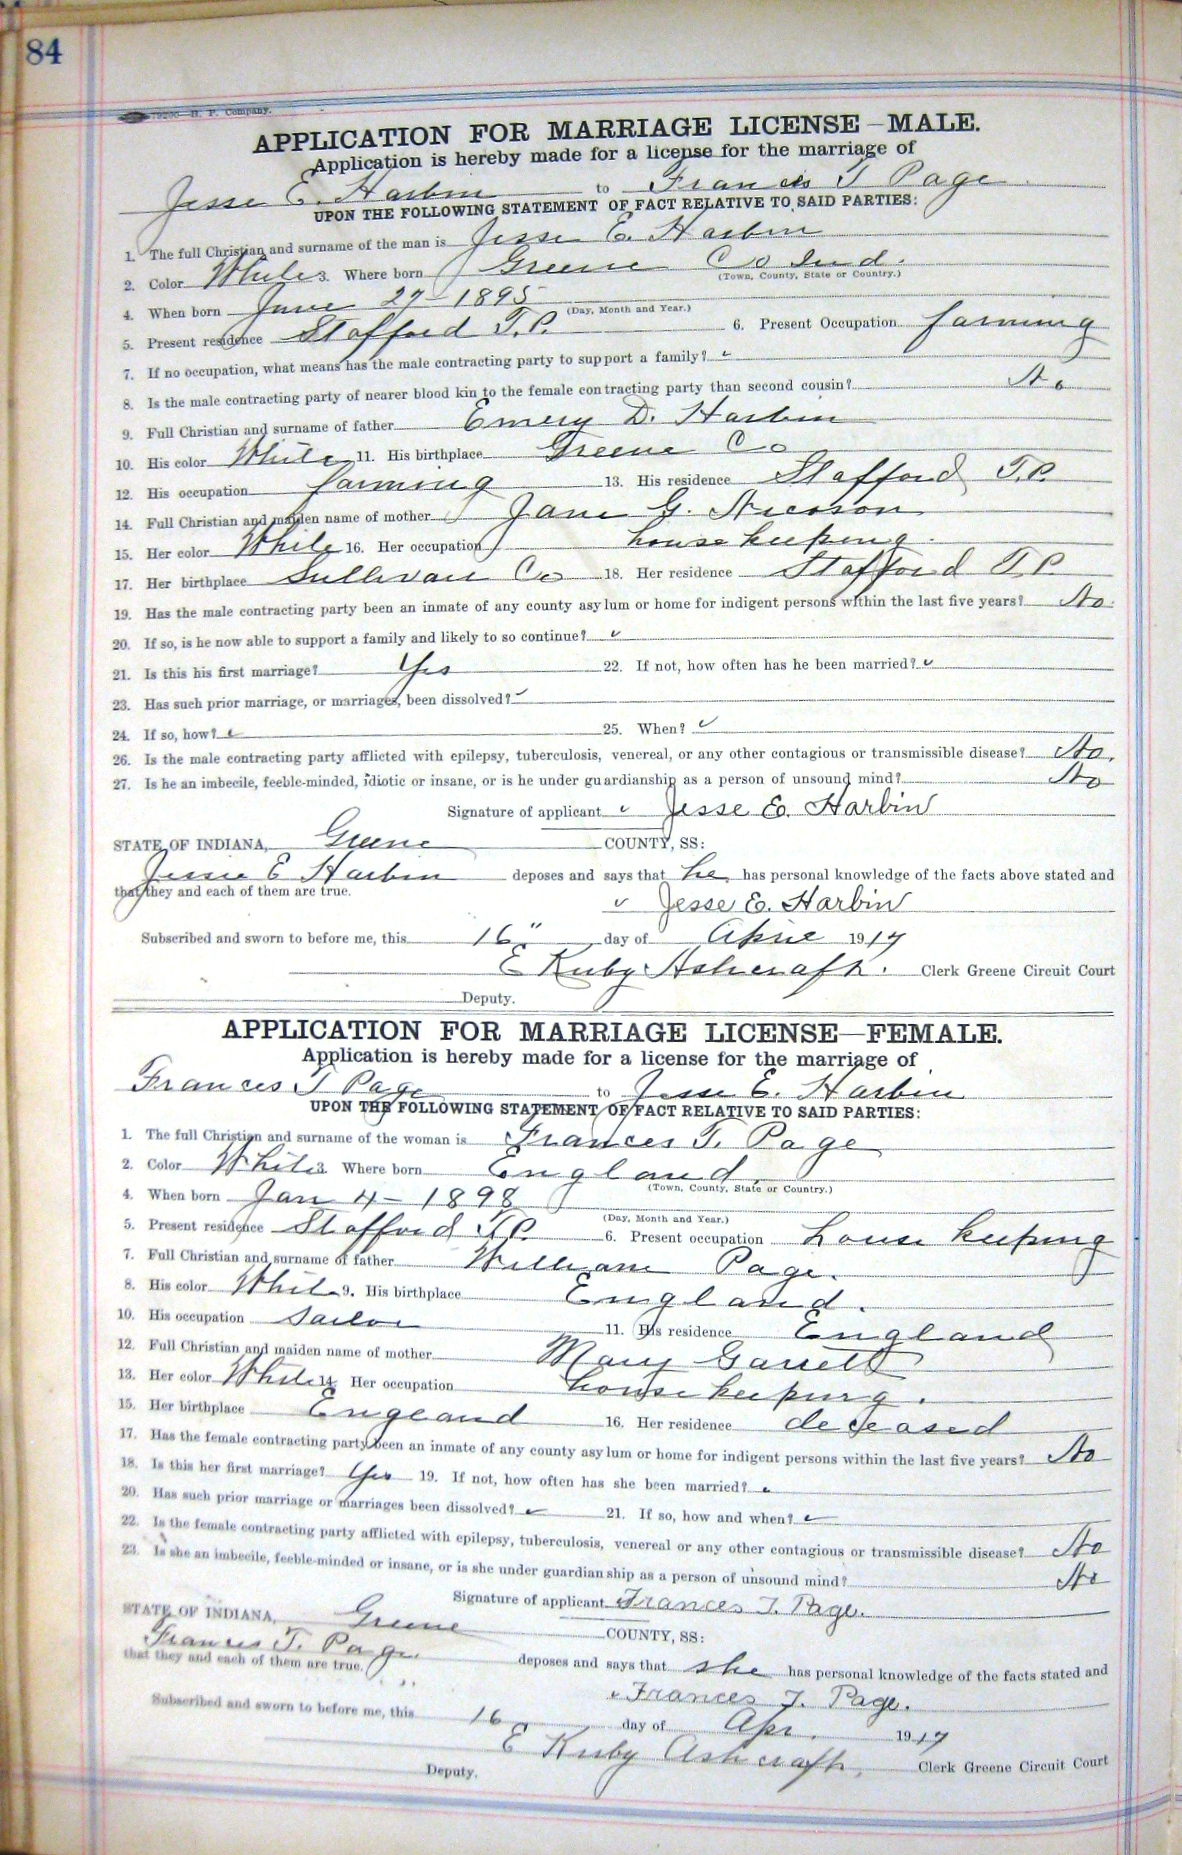 84
79200—H. P. Company.
APPLICATION FOR MARRIAGE LICENSE—MALE.
Application is hereby made for a license for the marriage of
Jesse E. Harbin to Frances T Page
UPON THE FOLLOWING STATEMENT OF FACT RELATIVE TO SAID PARTIES:
1. The full Christian and surname of the man is Jesse E. Harbin
2. Color White 3. Where born Greene Co Ind.
(Town, County, State or Country.)
4. When born June 27 - 1895
(Day, Month and Year.)
5. Present residence Stafford T.P. 6. Present Occupation farming
7. If no occupation, what means has the male contracting party to support a family?
8. Is the male contracting party of nearer blood kin to the female contracting party than second cousin? No
9. Full Christian and surname of father Emery D. Harbin
10. His color White 11. His birthplace Greene Co
12. His occupation farming 13. His residence Stafford T.P.
14. Full Christian and maiden name of mother Jane G.
15. Her color White 16. Her occupation house keeping.
17. Her birthplace Sullivan Co 18. Her residence Stafford T.P.
19. Has the male contracting party been an inmate of any county asylum or home for indigent persons within the last five years? No.
20. If so, is he now able to support a family and likely to so continue?
21. Is this his first marriage? Yes 22. If not, how often has he been married?
23. Has such prior marriage, or marriages, been dissolved?
24. If so, how? 25. When?
26. Is the male contracting party afflicted with epilepsy, tuberculosis, venereal, or any other contagious or transmissible disease? No.
27. Is he an imbecile, feeble-minded, idiotic or insane, or is he under guardianship as a person of unsound mind? No
Signature of applicant Jesse E. Harbin
STATE OF INDIANA, Greene COUNTY, SS:
Jessie E Harbin deposes and says that he has personal knowledge of the facts above stated and
that they and each of them are true.
Jesse E. Harbin
Subscribed and sworn to before me, this 16" day of April 1917
E Ruby Ashcraft. Clerk Greene Circuit Court
Deputy.
APPLICATION FOR MARRIAGE LICENSE—FEMALE.
Application is hereby made for a license for the marriage of
Frances T Page to Jesse E. Harbin
UPON THE FOLLOWING STATEMENT OF FACT RELATIVE TO SAID PARTIES:
1. The full Christian and surname of the woman is Frances T. Page
2. Color White 3. Where born England.
(Town, County, State or Country.)
4. When born Jan 4 - 1898
(Day, Month and Year.)
5. Present residence Stafford T.P. 6. Present occupation house keeping
7. Full Christian and surname of father William Page.
8. His color White 9. His birthplace England.
10. His occupation sailor 11. His residence England
12. Full Christian and maiden name of mother Mary Garrett
13. Her color White 14. Her occupation house keeping.
15. Her birthplace England 16. Her residence deceased
17. Has the female contracting party been an inmate of any county asylum or home for indigent persons within the last five years? No
18. Is this her first marriage? Yes 19. If not, how often has she been married?
20. Has such prior marriage or marriages been dissolved? 21. If so, how and when?
22. Is the female contracting party afflicted with epilepsy, tuberculosis, venereal or any other contagious or transmissible disease? No
23. Is she an imbecile, feeble-minded or insane, or is she under guardianship as a person of unsound mind? No
Signature of applicant Frances T. Page.
STATE OF INDIANA, Greene COUNTY, SS:
Frances T. Page deposes and says that she has personal knowledge of the facts stated and
that they and each of them are true.
Frances T. Page.
Subscribed and sworn to before me, this 16 day of Apr. 1917
E Ruby Ashcraft, Clerk Greene Circuit Court
Deputy.